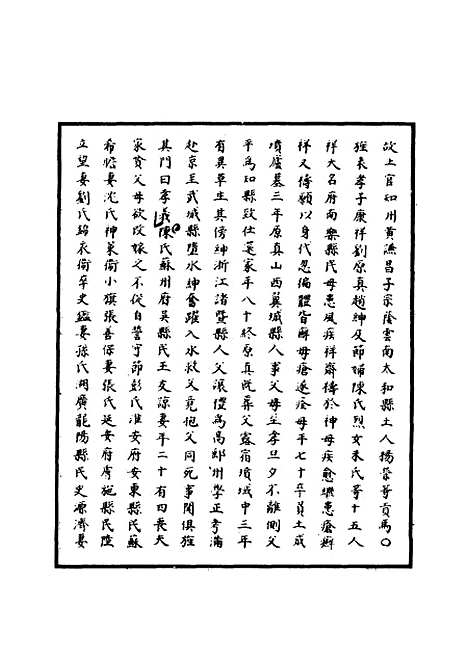 故土官知州黃漁昌子宗蔭雲南太和縣土人楊榮等貢馬○
旌表孝子康祥劉原真趙紳及節婦陳氏烈女朱氏等十五人
祥大名府南樂縣民母患風疾祥齋禱於神母疾愈繼患瘡癬
祥又禱願以身代忽徧體皆癬母瘡遂痊母年七十卒負土成
墳廬墓三年原真山西翼城縣人事父母至孝旦夕不離側父
平為知縣致仕英家年八十終原真既葬父露宿墳域中三年
有異草生其傍紳浙江諸暨縣人父濵僾為高郵州學正考滿
赴京至武城縣墮水紳奮躍入水救父竟抱父同死事聞俱旌
其門曰孝義陳氏蘇州府吳縣民王友諒妻年二十有四喪夫
家貧父母欲改嫁之不從自誓守節彭氏淮安府安東縣民蘇
希恱妻沈氏神策衛小旗張善保妻張氏延安府膚施縣民陸
立望妻劉氏錦衣衛卒史鑑妻孫氏湖廣龍陽縣民史源濟妻